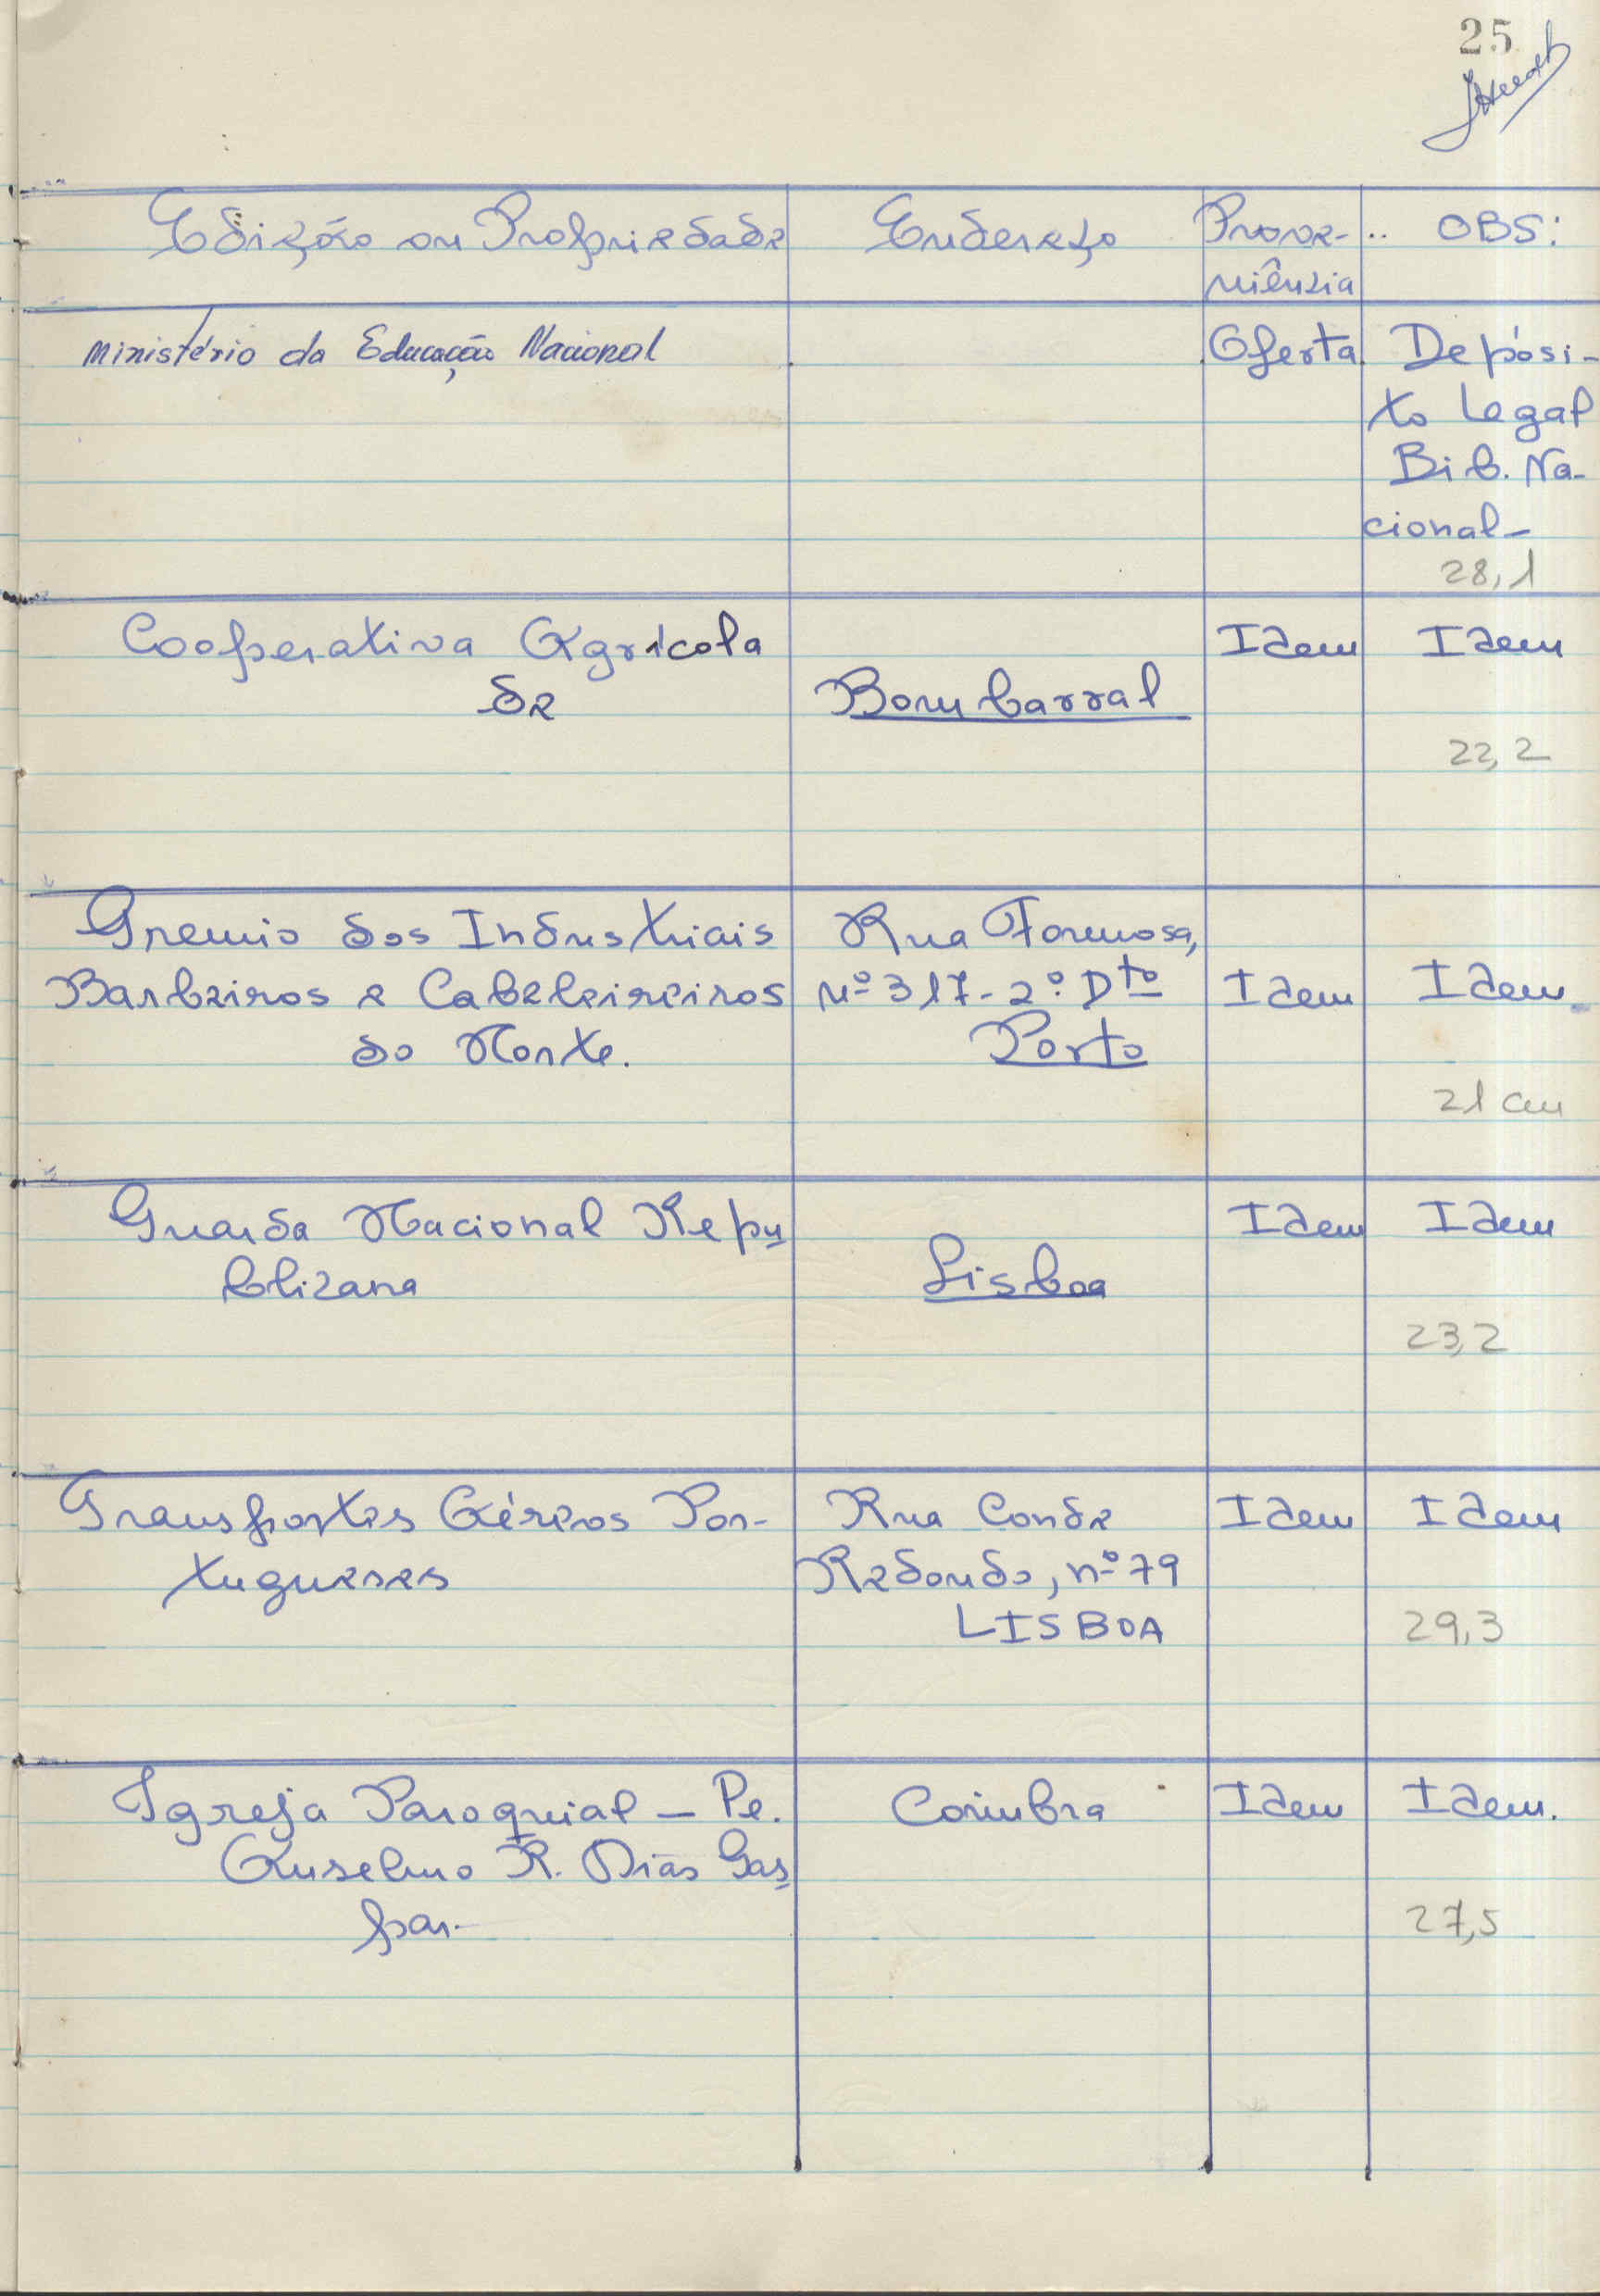 25
Edição ou Propriedade Endereço Prove- OBS:
niência
Ministério da Educação Nacional Oferta Depósi-
to Legal
Bib. Na-
cional-
28,1
Cooperativa Agrícola Idem Idem
de Bombarral
22,2
Gremio dos Industriais Rua Formosa,
Barbeiros e Cabeleireiros Nº 317-2º. Dto Idem Idem.
do Norte. Porto
21 cm
Guarda Nacional Repu Idem Idem
blicana Lisboa
23,2
Transportes Aéreos Por- Rua Conde Idem Idem
tugueses Redondo, nº 79
LISBOA 29,3
Igreja Paroquial - Pe. Coimbra Idem Idem.
Anselmo R. Dias Gas
par. 27,5